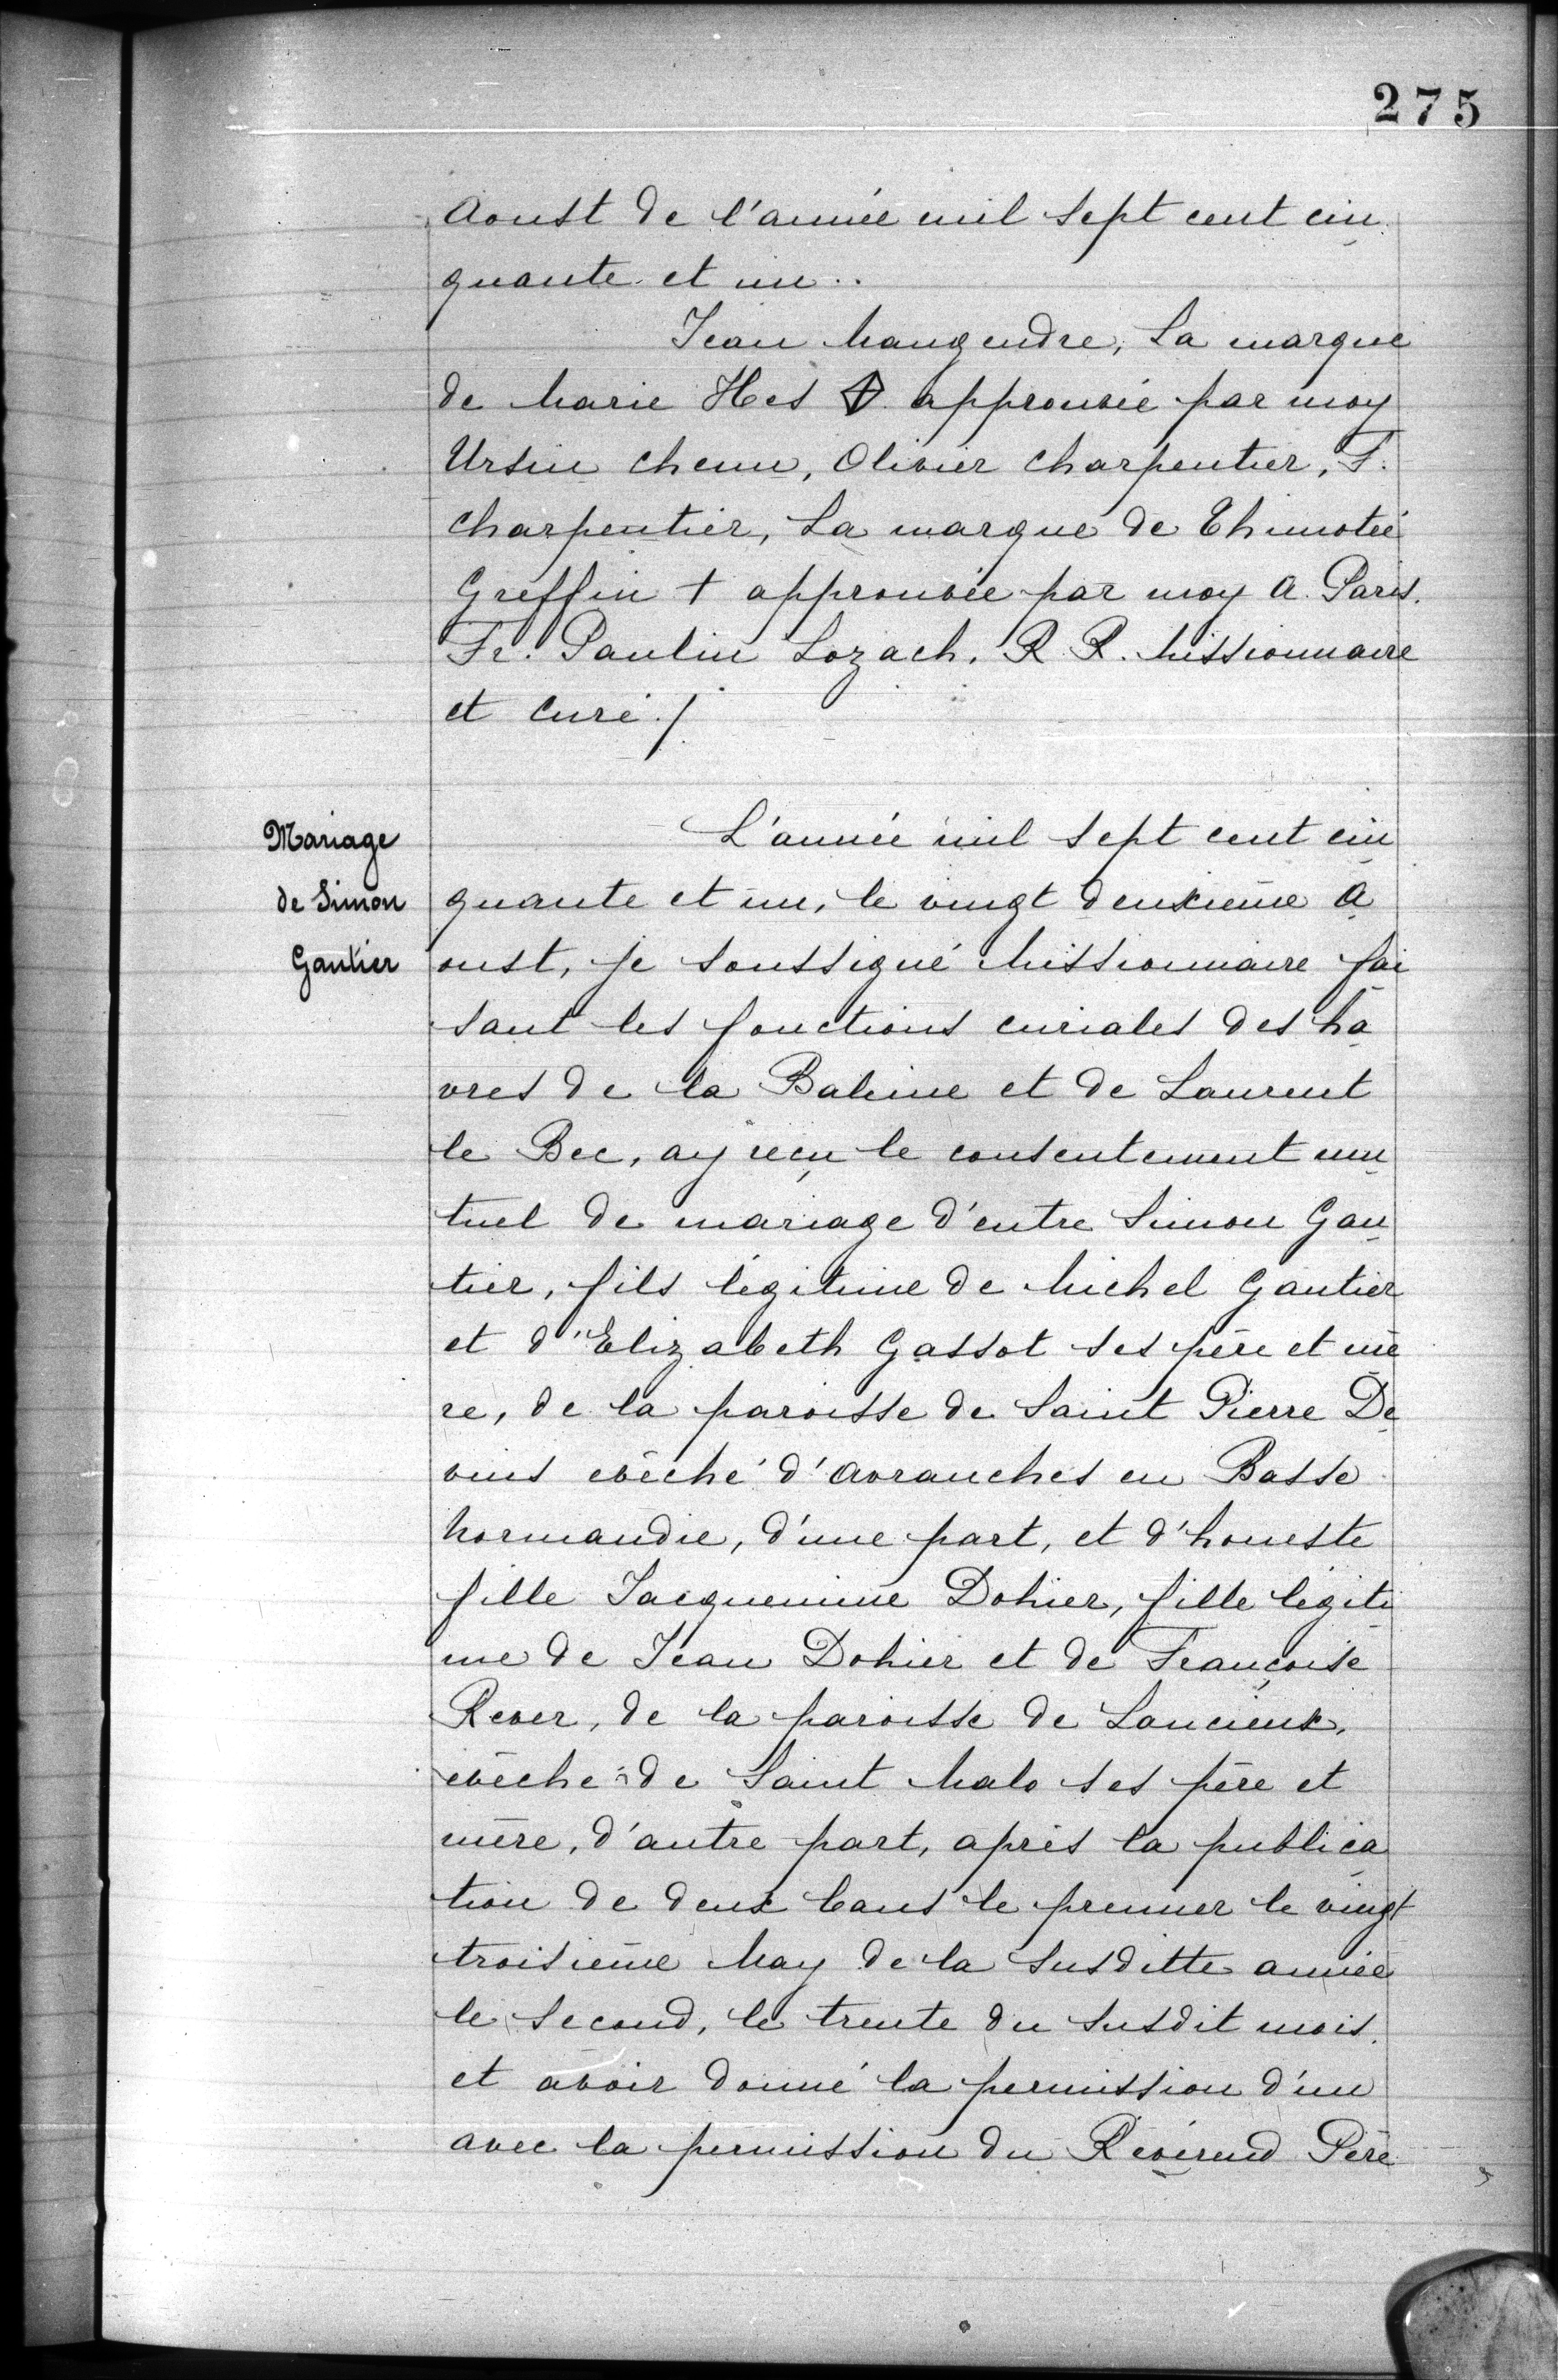 275
Aoust de l'année mil sept cent cin
quante et un..
Jean Maugendre, La marque
de Marie Hes approuvée par moy
Ursin chenu, Olivier charpentier, F.
charpentier, La marque de Thimotée
Greffin + approuvée par moy A. Paris.
Fr. Paulin Lozach. R. R. Missionnaire
et Curé ./
Mariage
de Simon
Gautier
L'année mil sept cent cin
quante et un, le vingt deuxième A
oust, je soussigné Missionnaire fai
sant les fonctions curiales des ha
vres de la Baleine et de Laurent
le Bec, ay reçu le consentement mu
tuel de mariage d'entre Simon Gau
tier, fils légitime de Michel Gautier
et d'Elizabeth Gassot ses père et mè
re, de la paroisse de Saint Pierre De
vins evêché d'Avranches en Basse
Normandie, d'une part, et d'honeste
fille Jacquemine Dohier, fille légiti
me de Jean Dohier et de Françoise
Rever, de la paroisse de Lancieux,
evêché de Saint Malo ses père et
mère, d'autre part, après la publica
tion de deux bans le premier le vingt
troisième May de la susditte année
le second, le trente du susdit mois.
et avoir donné la permission d'un
avec la permission du Révérend Père